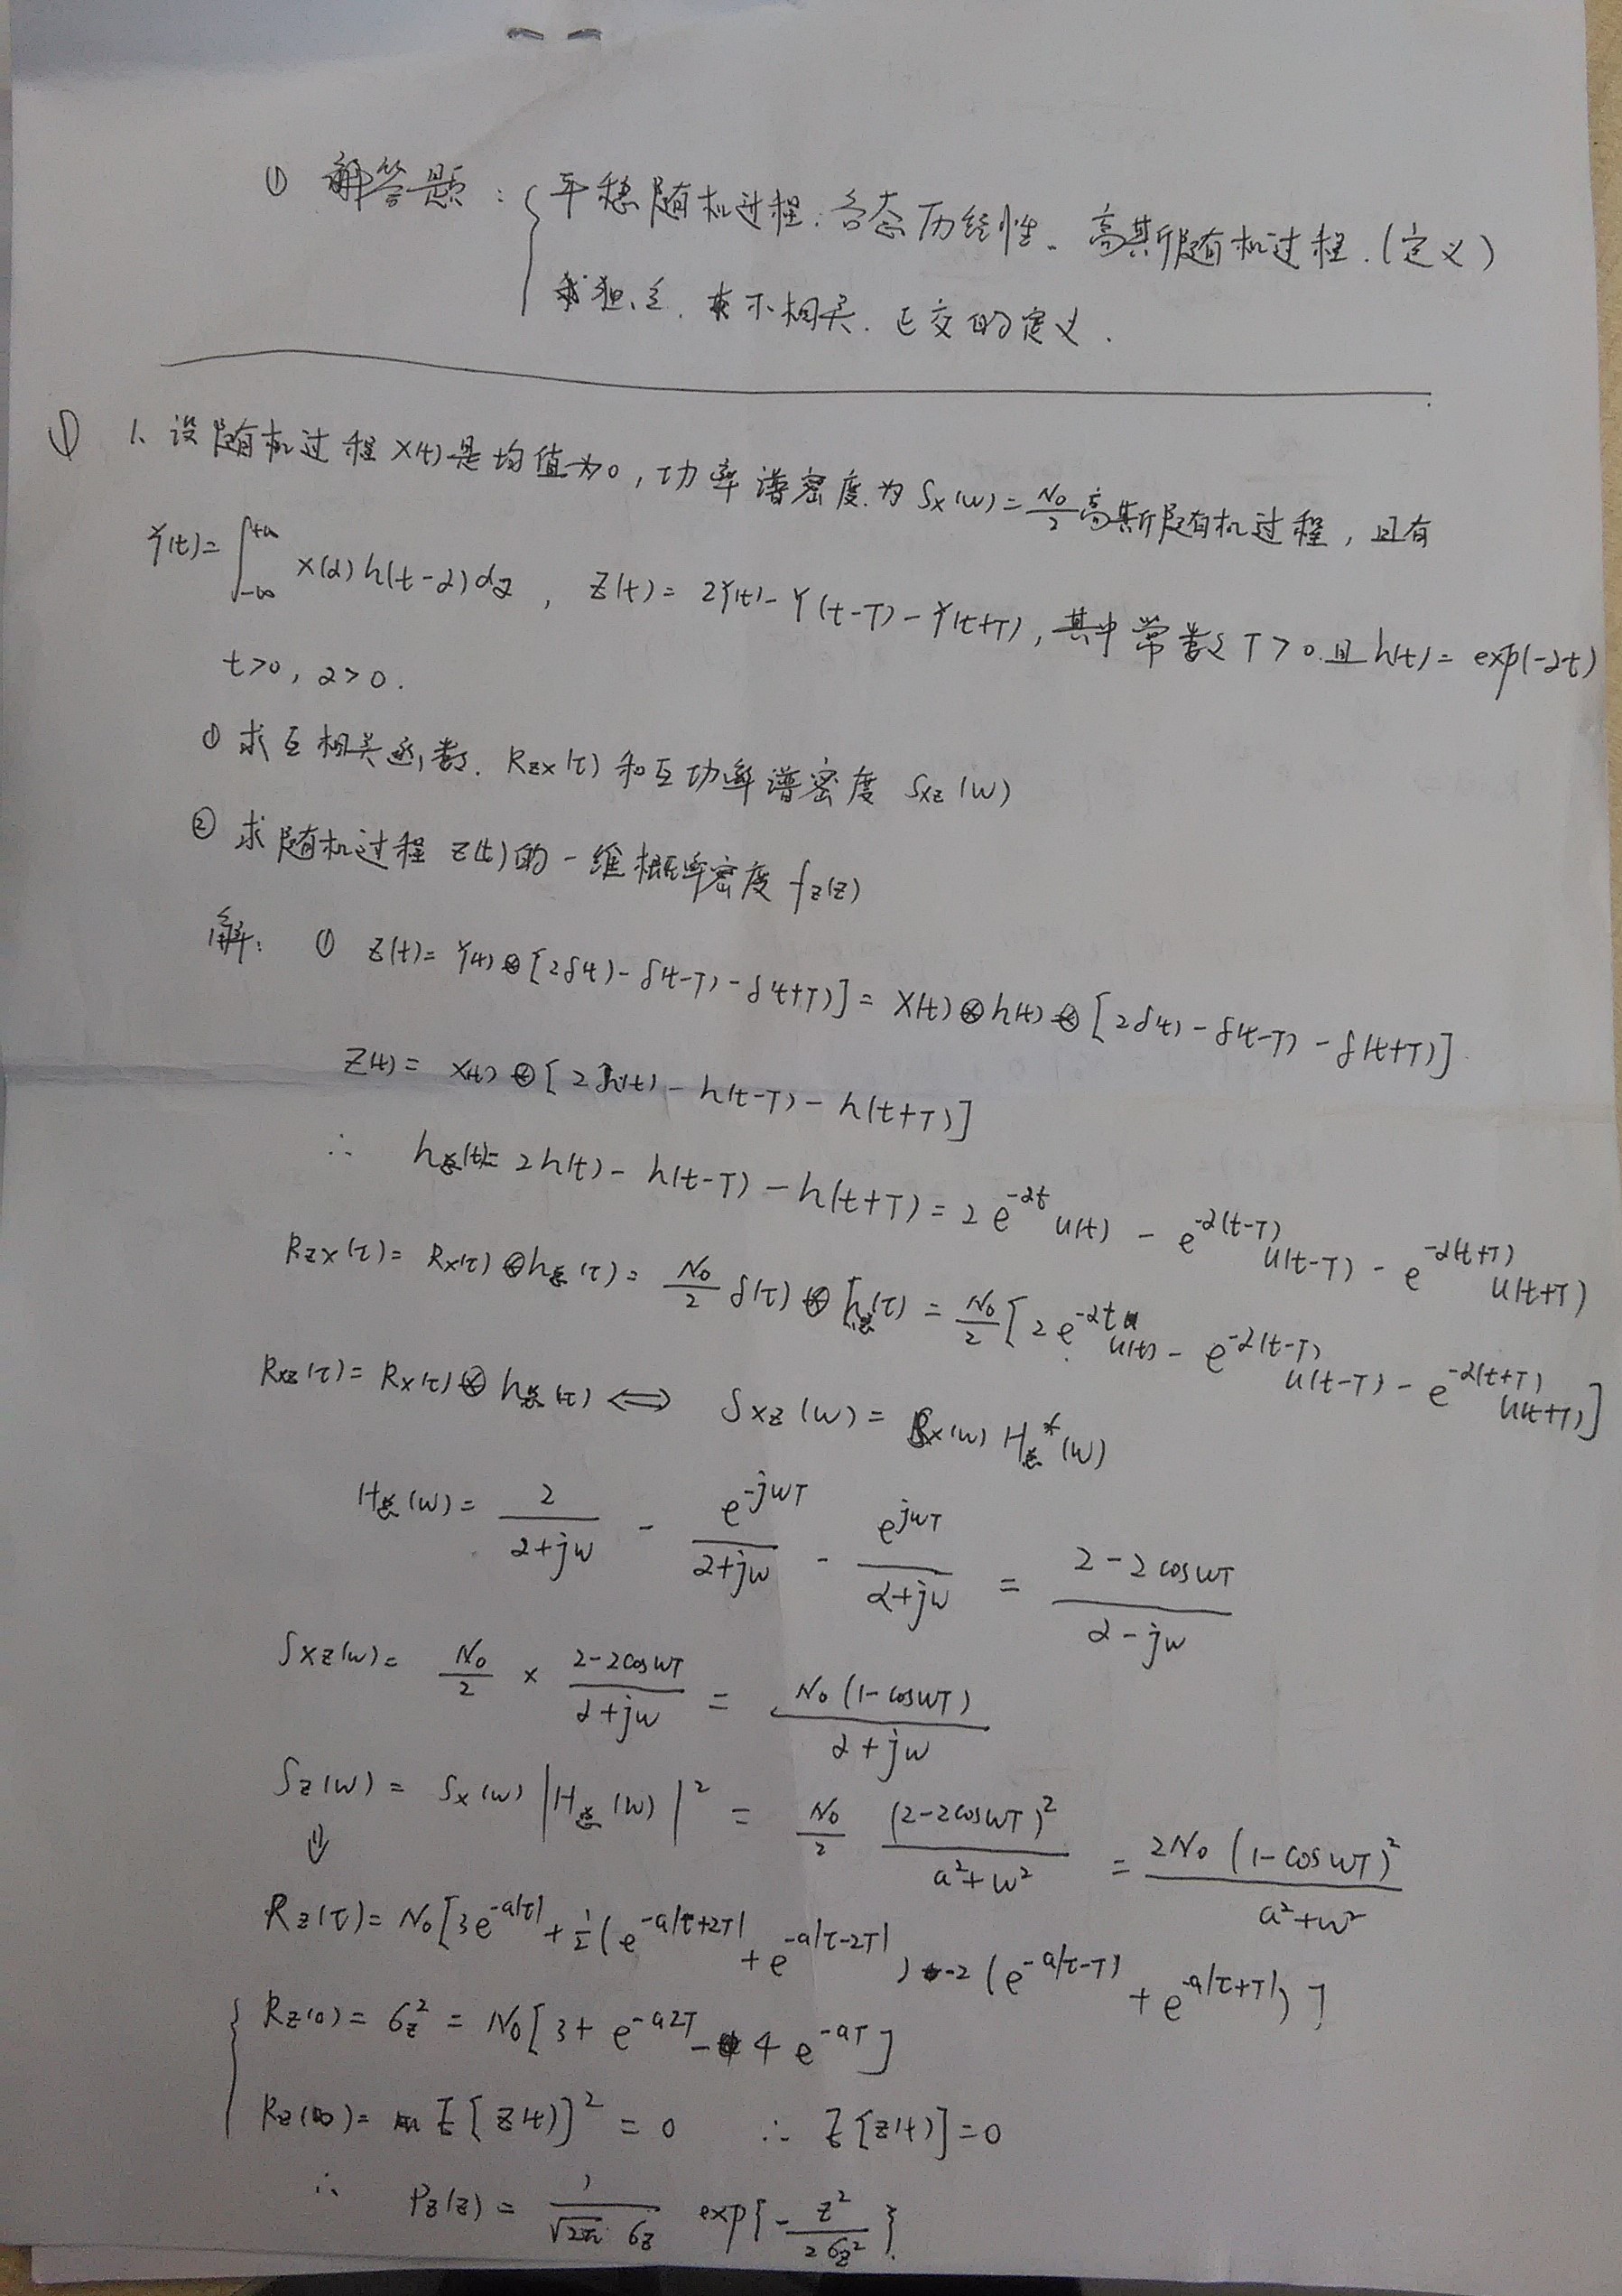 ① 解答题：{ 平稳随机过程. 各态历经性、高斯随机过程.(定义)
独立. 不相关. 正交的定义.
① 1、设随机过程X(t)是均值为0，功率谱密度.为 Sx(w)=N0/2 高斯随机过程，且有
Y(t)=∫_{-∞}^{+∞} X(α)h(t-α)dα，Z(t)=2Y(t)-Y(t-T)-Y(t+T)，其中常数T>0.且h(t)=exp(-αt)
t>0，α>0.
① 求互相关函数. Rzx(τ)和互功率谱密度 Sxz(w)
② 求随机过程 Z(t)的一维概率密度 fz(z)
解： ① Z(t)=Y(t)⊗[2δ(t)-δ(t-T)-δ(t+T)]=X(t)⊗h(t)⊗[2δ(t)-δ(t-T)-δ(t+T)]
Z(t)=X(t)⊗[2h(t)-h(t-T)-h(t+T)]
∴ h总(t)=2h(t)-h(t-T)-h(t+T)=2e^{-αt}u(t)-e^{-α(t-T)}u(t-T)-e^{-α(t+T)}u(t+T)
Rzx(τ)=Rx(τ)⊗h总(τ)=N0/2 δ(τ)⊗h总(τ)=N0/2[2e^{-αt}u(t)-e^{-α(t-T)}u(t-T)-e^{-α(t+T)}u(t+T)]
Rxz(τ)=Rx(τ)⊗h总(τ)⟺ Sxz(w)=Sx(w)H总*(w)
H总(w)=2/(α+jw) - e^{-jwT}/(α+jw) - e^{jwT}/(α+jw) = (2-2coswT)/(α-jw)
Sxz(w)=N0/2 × (2-2coswT)/(α+jw) = N0(1-coswT)/(α+jw)
Sz(w)=Sx(w)|H总(w)|² = N0/2 (2-2coswT)²/(a²+w²) = 2N0(1-coswT)²/(a²+w²)
⇓
Rz(τ)=N0[3e^{-a|τ|}+1/2(e^{-a|τ+2T|}+e^{-a|τ-2T|})-2(e^{-a|τ-T|}+e^{-a|τ+T|})]
{ Rz(0)=σz²=N0[3+e^{-a2T}-4e^{-aT}]
Rz(∞)=E[Z(t)]²=0 ∴ E[Z(t)]=0
∴ Pz(z)=1/(√2π σz) exp{-z²/2σz²}.